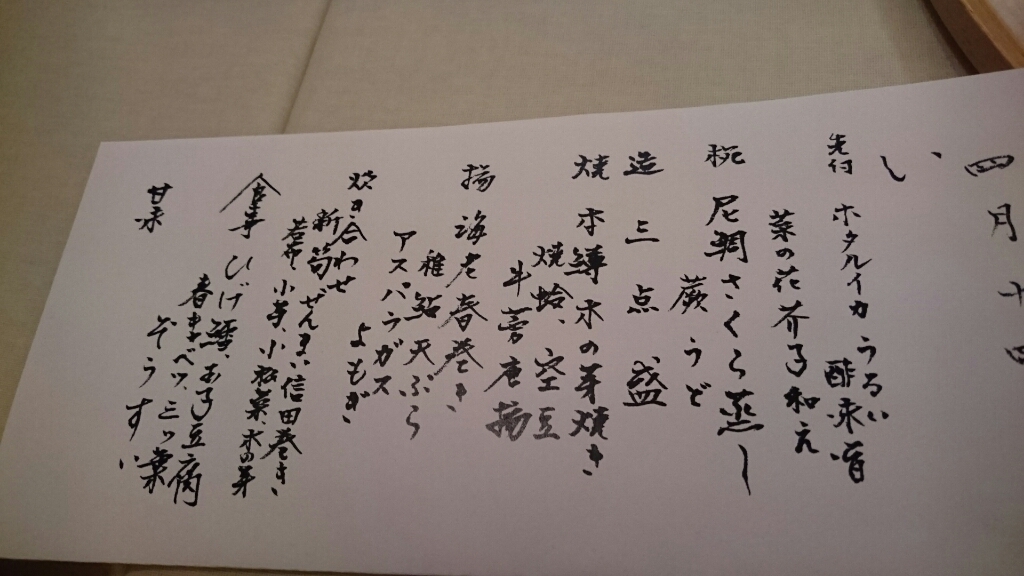 四月十四
い
先付 ホタルイカ うるい
酢味噌
菜の花芥子和え
椀 尼鯛さくら蒸し
蕨 うど
造 三点盛
焼 本鱒木の芽焼き
焼蛤、空豆
牛蒡唐揚
揚 海老春巻き
稚鮎天ぷら
アスパラガス
炊き合わせ よもぎ
新筍 ぜんまい 信田巻き、
若布、小芋、小松菜 木の芽
食事 ひげ鱈、あら 豆腐
春キャベツ、三ッ葉
ぞうすい
甘味